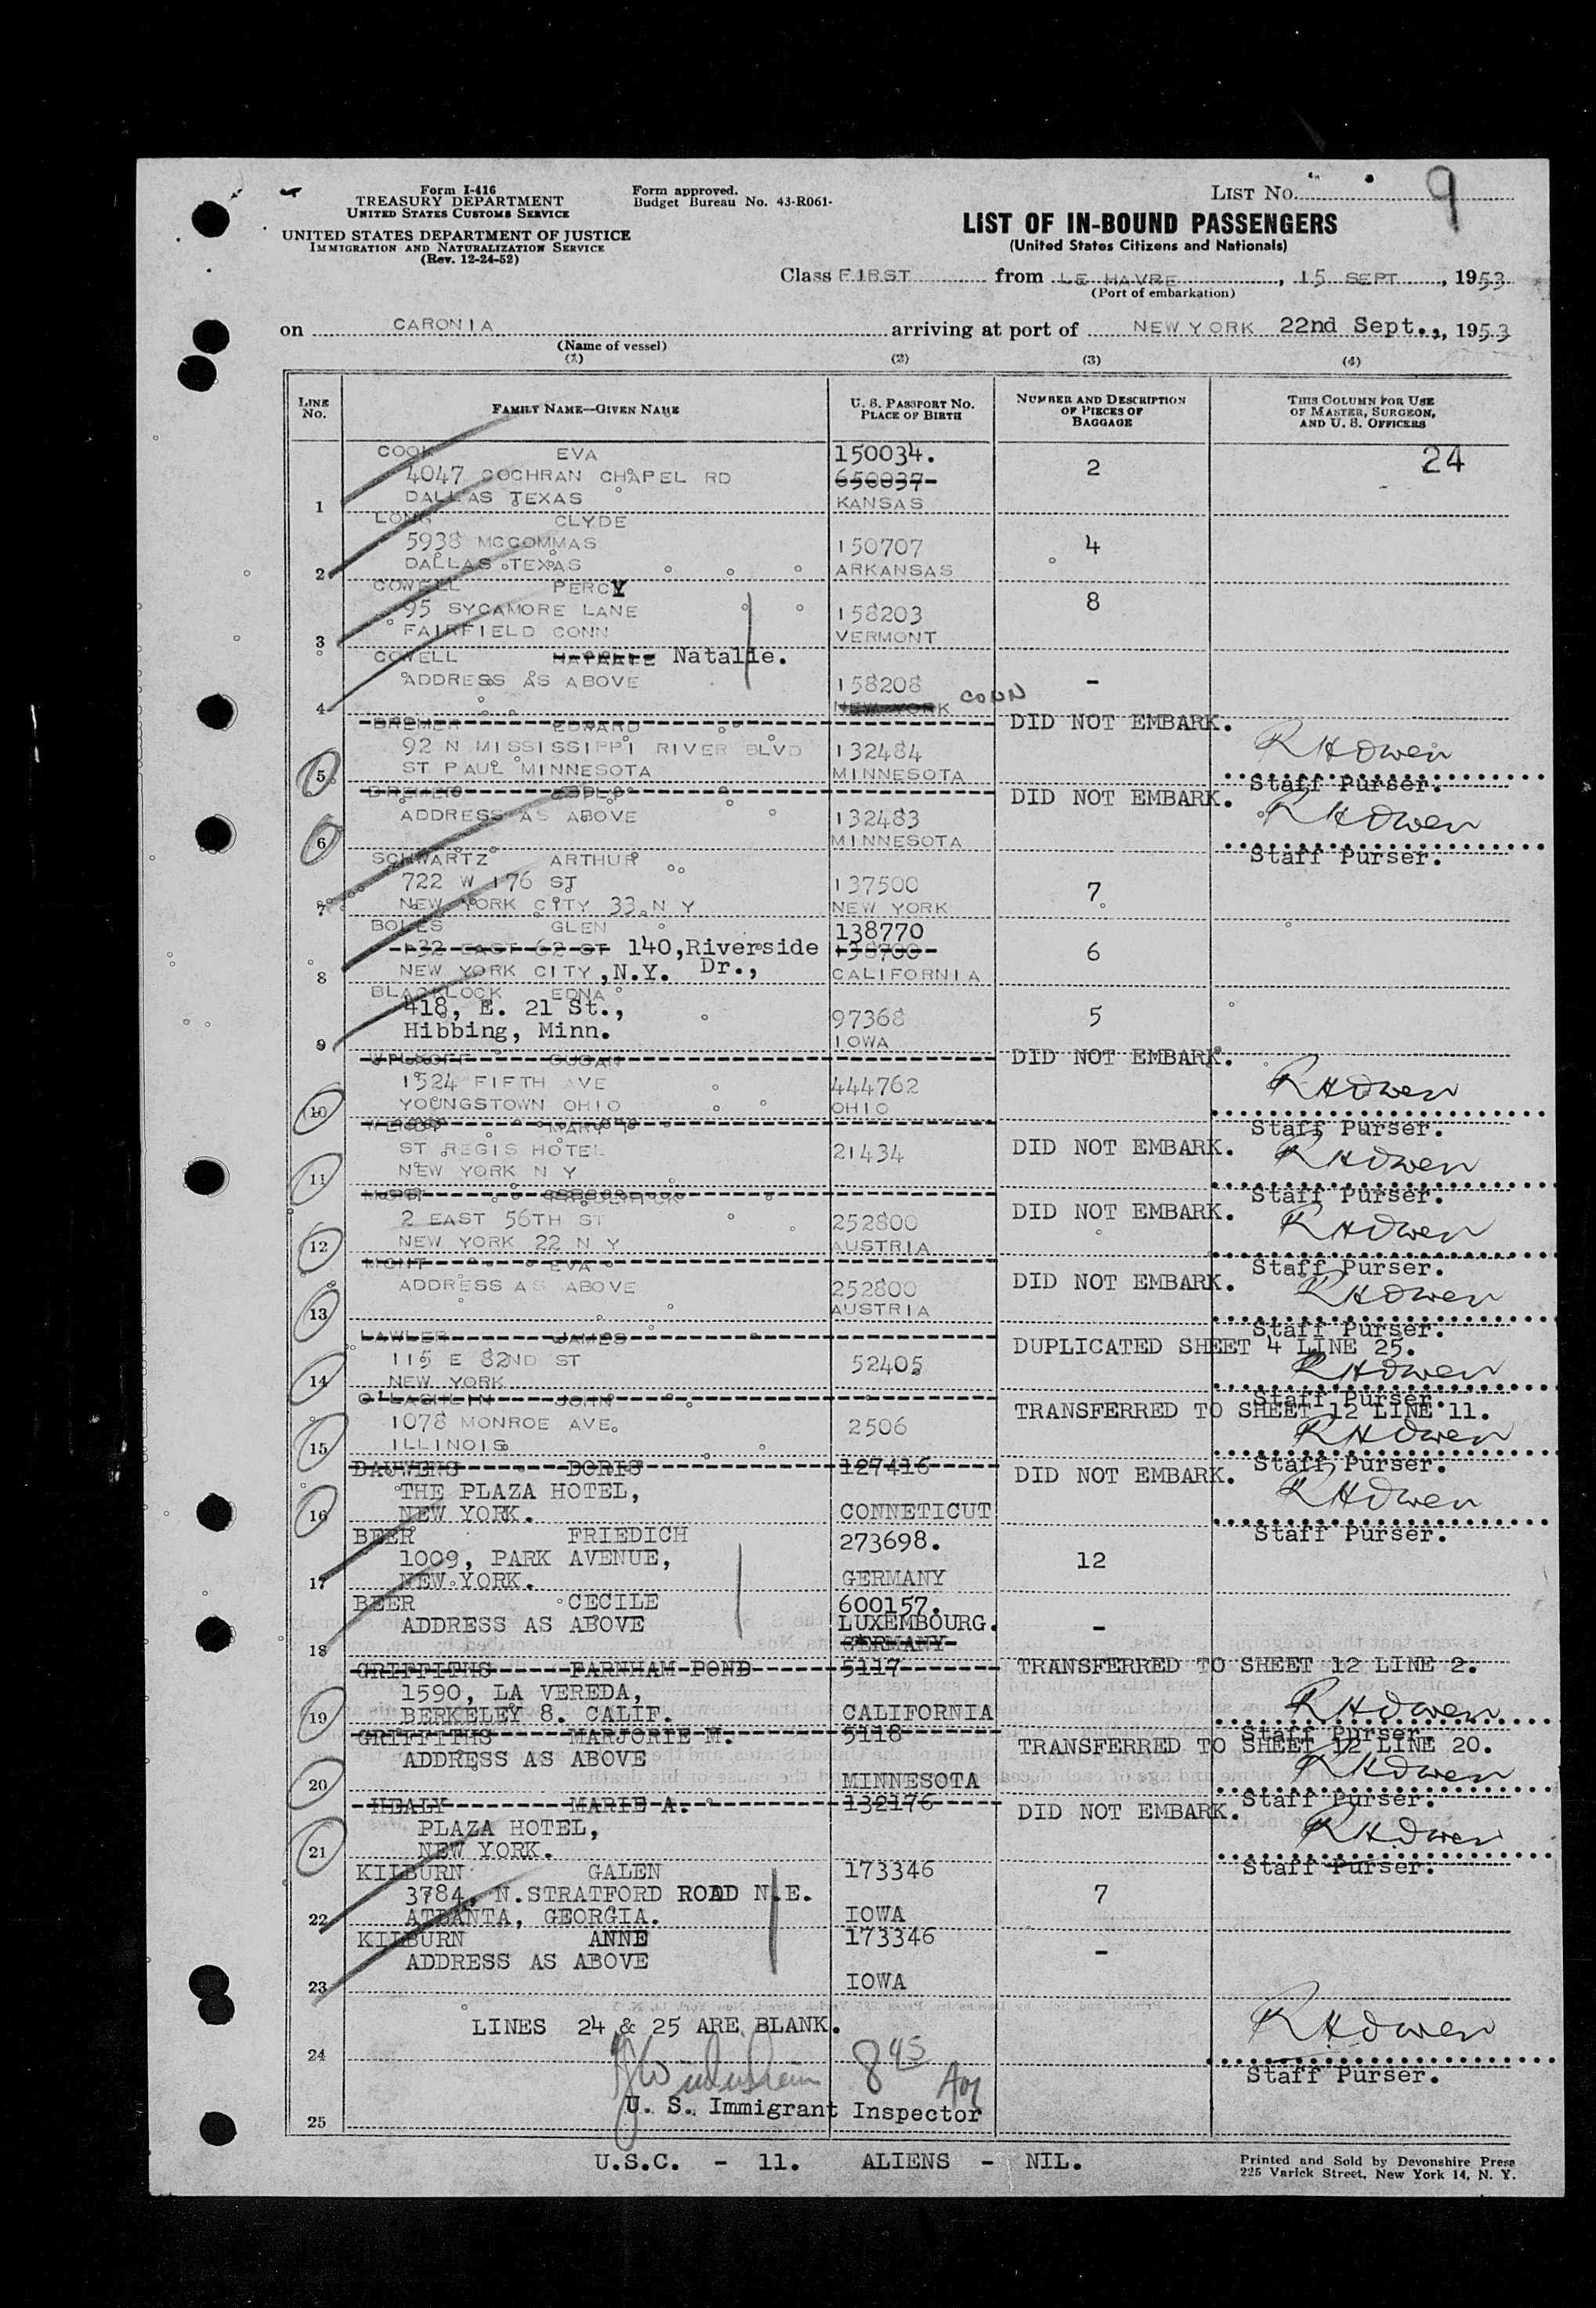 Form I-416
TREASURY DEPARTMENT
UNITED STATES CUSTOMS SERVICE
UNITED STATES DEPARTMENT OF JUSTICE
IMMIGRATION AND NATURALIZATION SERVICE
(Rev. 12-24-52)
Form approved.
Budget Bureau No. 43-R061-
LIST No. 9
LIST OF IN-BOUND PASSENGERS
(United States Citizens and Nationals)
Class FIRST from LE HAVRE, 15 SEPT, 1953
(Port of embarkation)
on CARONIA arriving at port of NEW YORK 22nd Sept., 1953
(Name of vessel)
(1) (2) (3) (4)
LINE No. FAMILY NAME—GIVEN NAME U. S. PASSPORT No. PLACE OF BIRTH NUMBER AND DESCRIPTION OF PIECES OF BAGGAGE THIS COLUMN FOR USE OF MASTER, SURGEON, AND U. S. OFFICERS
COOK EVA 150034. 24
4047 COCHRAN CHAPEL RD 650037 2
1 DALLAS TEXAS KANSAS
LONG CLYDE
5938 MCCOMMAS 150707 4
2 DALLAS TEXAS ARKANSAS
COWELL PERCY
95 SYCAMORE LANE 158203 8
3 FAIRFIELD CONN VERMONT
COWELL Natalie.
ADDRESS AS ABOVE 158208 -
4 NEW YORK CONN
BREMER EDWARD DID NOT EMBARK.
92 N MISSISSIPPI RIVER BLVD 132484 RHOwen
5 ST PAUL MINNESOTA MINNESOTA Staff Purser.
BREMER DID NOT EMBARK.
ADDRESS AS ABOVE 132483 RHOwen
6 MINNESOTA Staff Purser.
SCHWARTZ ARTHUR
722 W 176 ST 137500 7
7 NEW YORK CITY 33 N Y NEW YORK
BOLES GLEN 138770
132 EAST 62 ST 140,Riverside 138700 6
8 NEW YORK CITY ,N.Y. Dr., CALIFORNIA
BLACKLOCK EDNA
418, E. 21 St., 97368 5
9 Hibbing, Minn. IOWA
SUSAN DID NOT EMBARK.
1524 FIFTH AVE 444762 RHOwen
10 YOUNGSTOWN OHIO OHIO Staff Purser.
MARY
ST REGIS HOTEL 21434 DID NOT EMBARK. RHOwen
11 NEW YORK N Y Staff Purser.
MONT
2 EAST 56TH ST 252800 DID NOT EMBARK. RHOwen
12 NEW YORK 22 N Y AUSTRIA Staff Purser.
MONT EVA
ADDRESS AS ABOVE 252800 DID NOT EMBARK. RHOwen
13 AUSTRIA Staff Purser.
LAWLER JAMES DUPLICATED SHEET 4 LINE 25.
115 E 82ND ST 52405 RHOwen
14 NEW YORK Staff Purser.
O'LAGHLIN JOHN TRANSFERRED TO SHEET 12 LINE 11.
1078 MONROE AVE. 2506 RHOwen
15 ILLINOIS Staff Purser.
DAUWENS DORIS 127416 DID NOT EMBARK.
THE PLAZA HOTEL, RHOwen
16 NEW YORK. CONNETICUT Staff Purser.
BEER FRIEDICH 273698.
1009, PARK AVENUE, 12
17 NEW YORK. GERMANY
BEER CECILE 600157.
ADDRESS AS ABOVE LUXEMBOURG. -
18 GERMANY
GRIFFITHS FARNHAM POND 5117 TRANSFERRED TO SHEET 12 LINE 2.
1590, LA VEREDA, RHOwen
19 BERKELEY 8. CALIF. CALIFORNIA Staff Purser.
GRIFFITHS MARJORIE M. 5118 TRANSFERRED TO SHEET 12 LINE 20.
ADDRESS AS ABOVE RHOwen
20 MINNESOTA Staff Purser.
HEALY MARIE A. 132176 DID NOT EMBARK.
PLAZA HOTEL, RHOwen
21 NEW YORK. Staff Purser.
KILBURN GALEN 173346
3784, N.STRATFORD ROAD N.E. 7
22 ATLANTA, GEORGIA. IOWA
KILBURN ANNE 173346
ADDRESS AS ABOVE -
23 IOWA
LINES 24 & 25 ARE BLANK. RHOwen
24 845 Staff Purser.
U. S. Immigrant Inspector
25
U.S.C. - 11. ALIENS - NIL.
Printed and Sold by Devonshire Press
225 Varick Street, New York 14, N. Y.